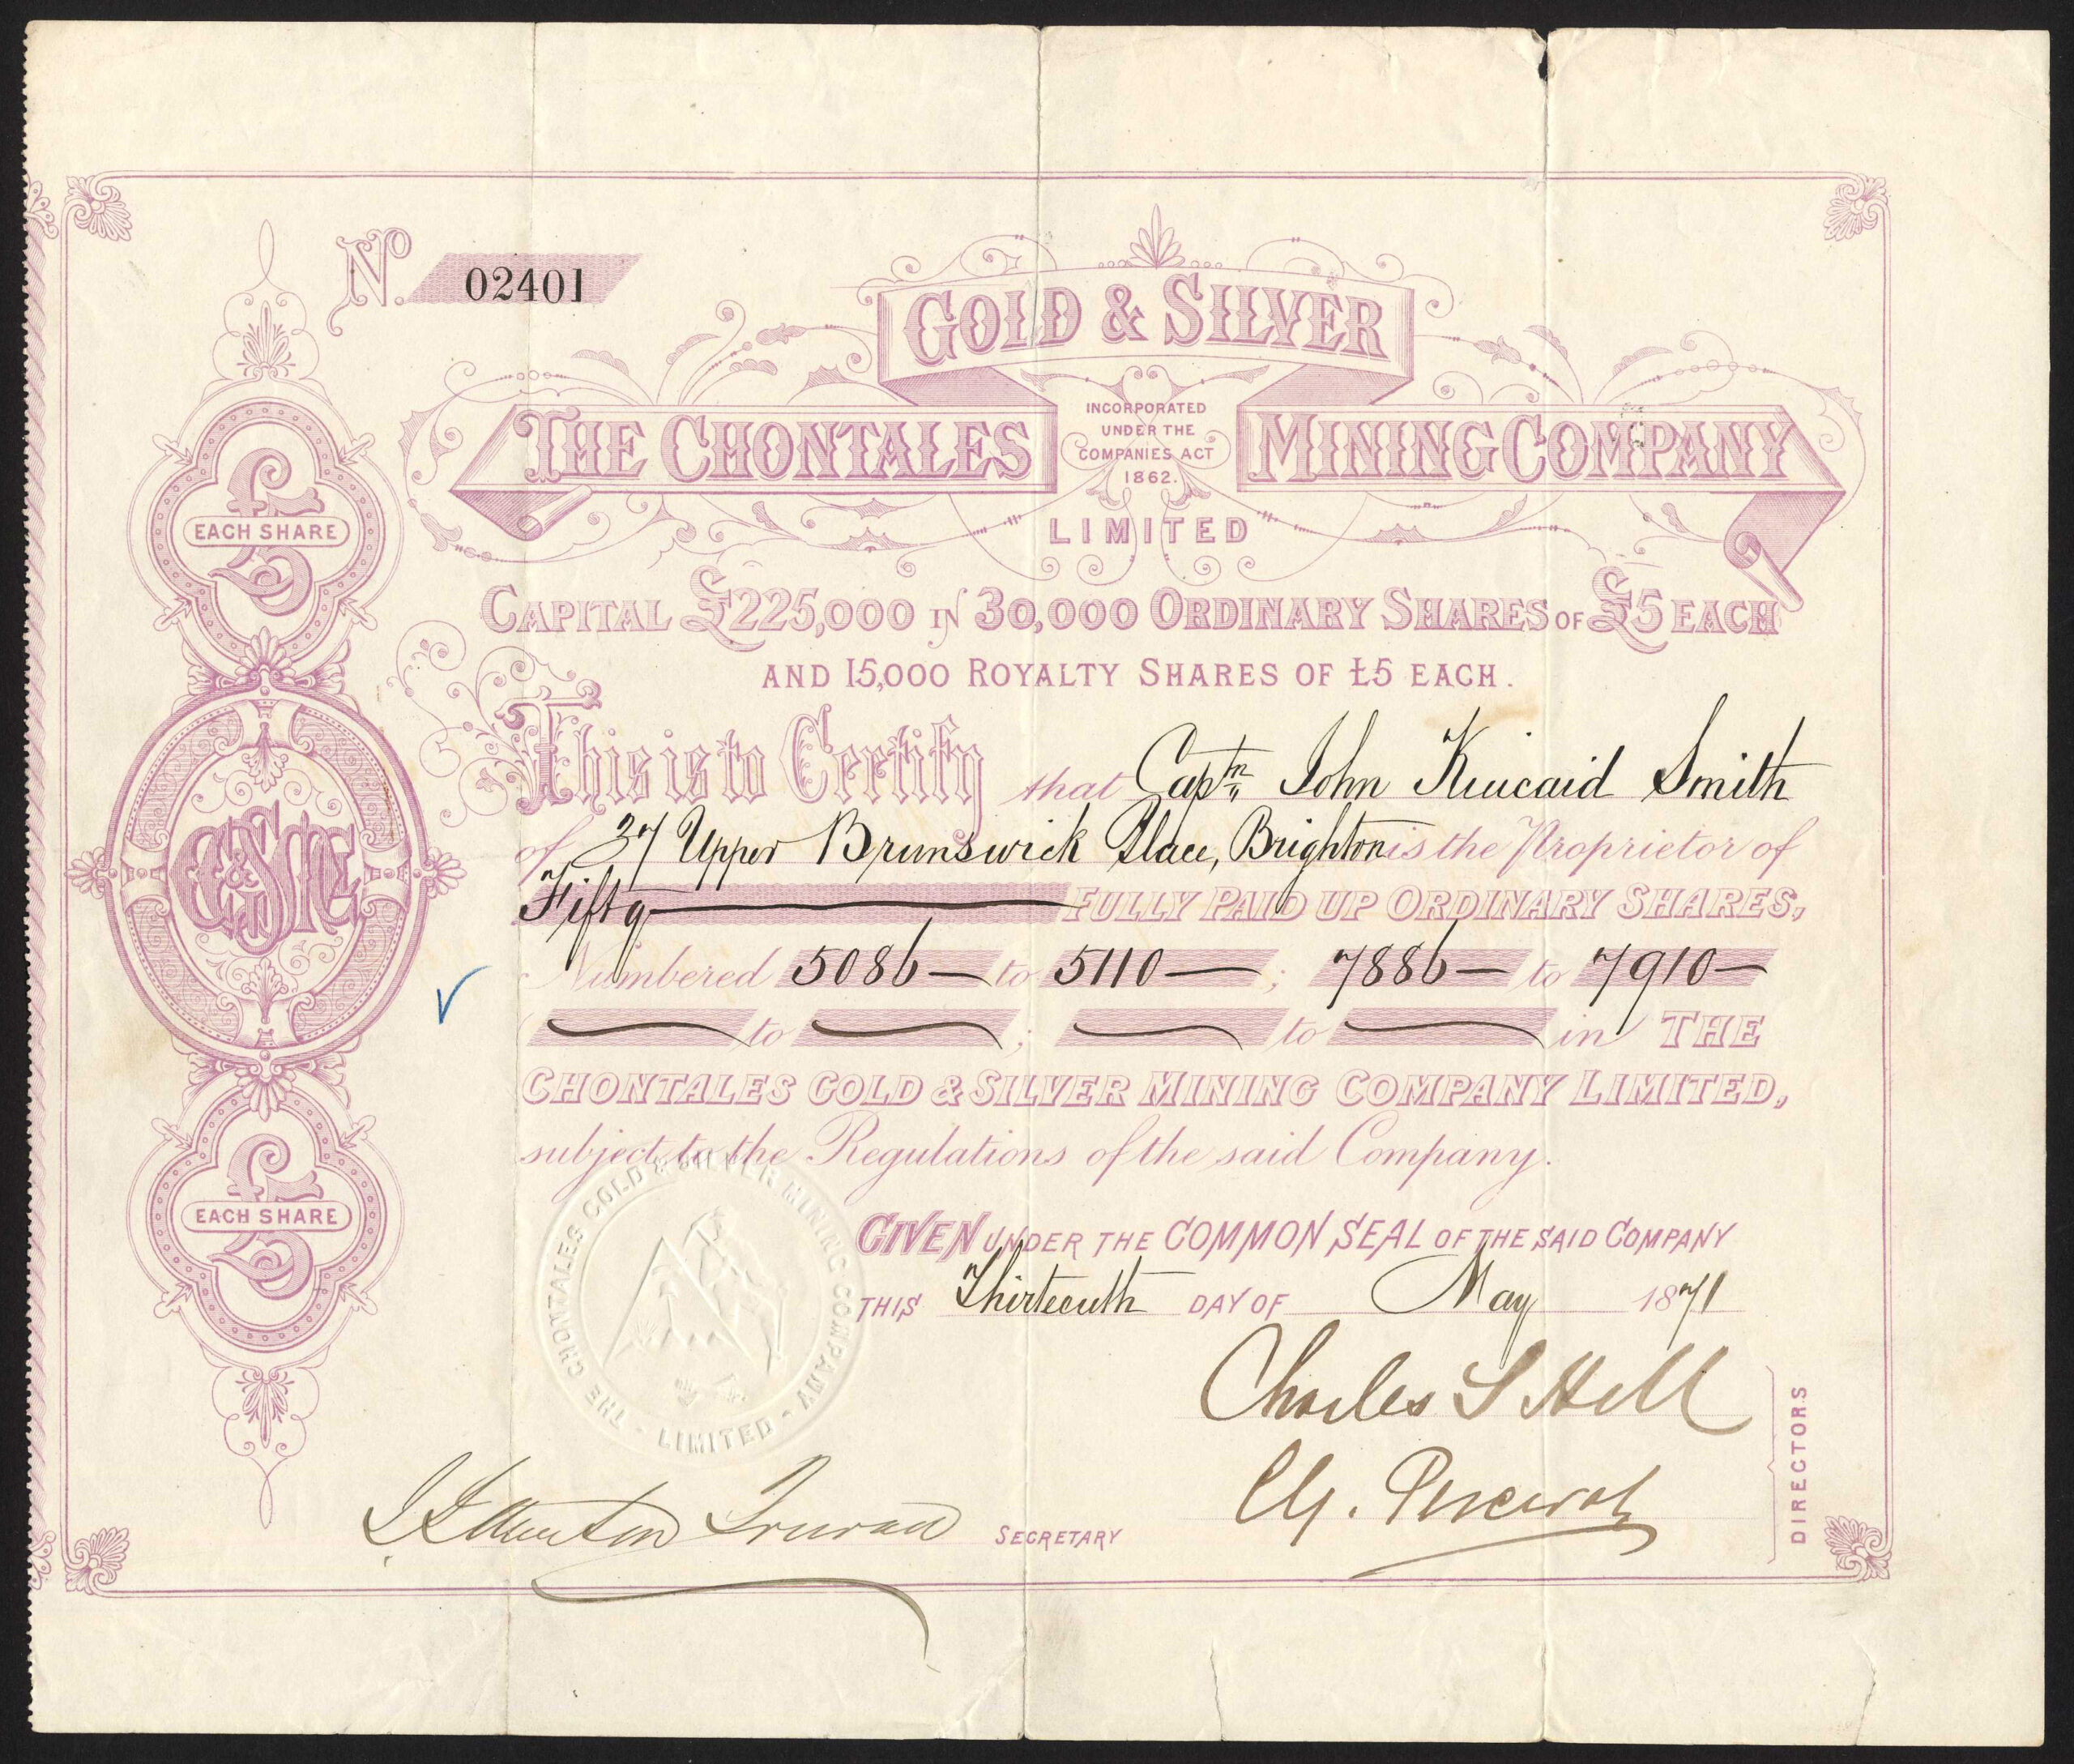 No. 02401
GOLD & SILVER
THE CHONTALES MINING COMPANY
INCORPORATED
UNDER THE
COMPANIES ACT
1862.
LIMITED
£5
EACH SHARE
CAPITAL £225,000 IN 30,000 ORDINARY SHARES OF £5 EACH
AND 15,000 ROYALTY SHARES OF £5 EACH.
This is to Certify that Captn. John Kincaid Smith
of 37 Upper Brunswick Place, Brighton is the Proprietor of
Fifty FULLY PAID UP ORDINARY SHARES,
Numbered 5086— to 5110—; 7886— to 7910—
— to —; — to — in THE
CHONTALES GOLD & SILVER MINING COMPANY LIMITED,
subject to the Regulations of the said Company.
£5
EACH SHARE
GIVEN UNDER THE COMMON SEAL OF THE SAID COMPANY
THIS Thirteenth DAY OF May 1871
THE CHONTALES GOLD & SILVER MINING COMPANY - LIMITED -
Charles S Hill
DIRECTORS
SECRETARY